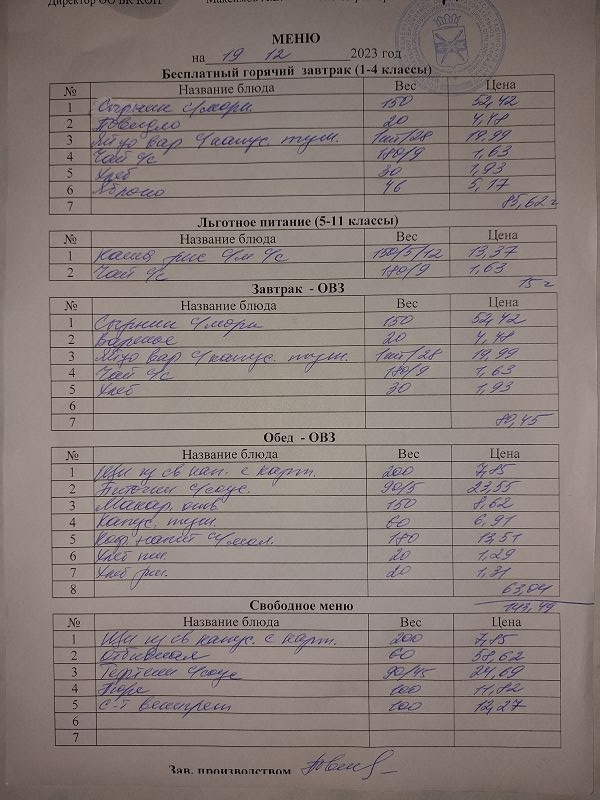 Директор ОО БК КОП
МЕНЮ
на 19 12 2023 год
Бесплатный горячий завтрак (1-4 классы)
№ Название блюда Вес Цена
1 Сырник с/морк. 150 52,42
2 Повидло 20 4,48
3 Яйцо вар с/капус. туш. 1шт/28 19,99
4 Чай с/с 180/9 1,63
5 Хлеб 30 1,93
6 Яблоко 46 5,17
7 85,62
Льготное питание (5-11 классы)
№ Название блюда Вес Цена
1 Каша рис с/м с/с 150/5/12 13,37
2 Чай с/с 180/9 1,63
15
Завтрак - ОВЗ
№ Название блюда Вес Цена
1 Сырник с/морк 150 52,42
2 Варенье 20 4,48
3 Яйцо вар с/капус. туш. 1шт/28 19,99
4 Чай с/с 180/9 1,63
5 Хлеб 30 1,93
6
7 80,45
Обед - ОВЗ
№ Название блюда Вес Цена
1 Щи из св кап. с карт. 200 7,85
2 Биточки с/соус. 90/5 23,55
3 Макар. отв. 150 8,62
4 Капус. туш. 60 6,91
5 Коф. напит с/мол. 180 13,51
6 Хлеб пш. 20 1,29
7 Хлеб рж. 20 1,31
8 63,04
143,49
Свободное меню
№ Название блюда Вес Цена
1 Щи из св капус. с карт. 200 7,85
2 Отбивная 60 58,62
3 Тефтели с/соус 90/45 24,69
4 Пюре 100 11,82
5 С-т винегрет 100 12,27
6
7
Зав. производством